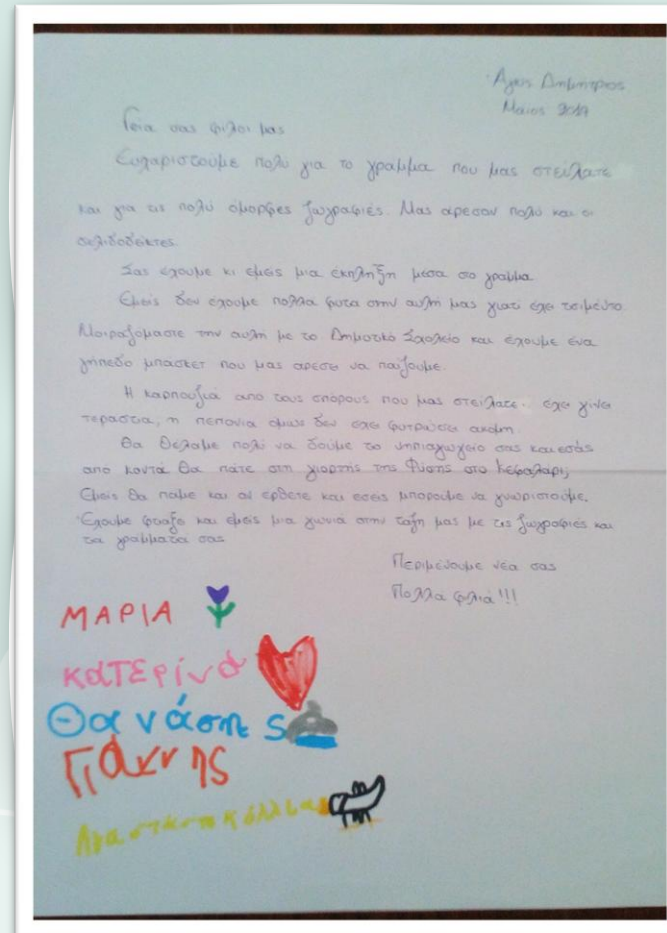 Άγιος Δημήτριος
Μάιος 2017
Γεία σας φίλοι μας
Ευχαριστούμε πολύ για το γράμμα που μας στείλατε
και για τις πολύ όμορφες ζωγραφιές. Μας άρεσαν πολύ και οι
σελιδοδείκτες.
Σας έχουμε κι εμείς μια έκπληξη μέσα στο γράμμα
Εμείς δεν έχουμε πολλά φυτά στην αυλή μας γιατί έχει τσιμέντο.
Μοιραζόμαστε την αυλή με το Δημοτικό Σχολείο και έχουμε ένα
γήπεδο μπάσκετ που μας αρέσει να παίζουμε.
Η καρπουζιά από τους σπόρους που μας στείλατε. έχει γίνει
τεράστια, η πεπονιά όμως δεν έχει φυτρώσει ακόμη.
Θα θέλαμε πολύ να δούμε το νηπιαγωγείο σας και εσάς
από κοντά Θα πάτε στη γιορτής της Φύσης στο Κεφαλάρι;
Εμείς θα πάμε και αν έρθετε και εσείς μπορούμε να γνωριστούμε.
Έχουμε φτιάξει και εμείς μια γωνιά στην τάξη μας με τις ζωγραφιές και
τα γράμματά σας
Περιμένουμε νέα σας
Πολλά φιλιά!!!
ΜΑΡΙΑ
ΚατΕρίνα
Θανάσης
Γιάννης